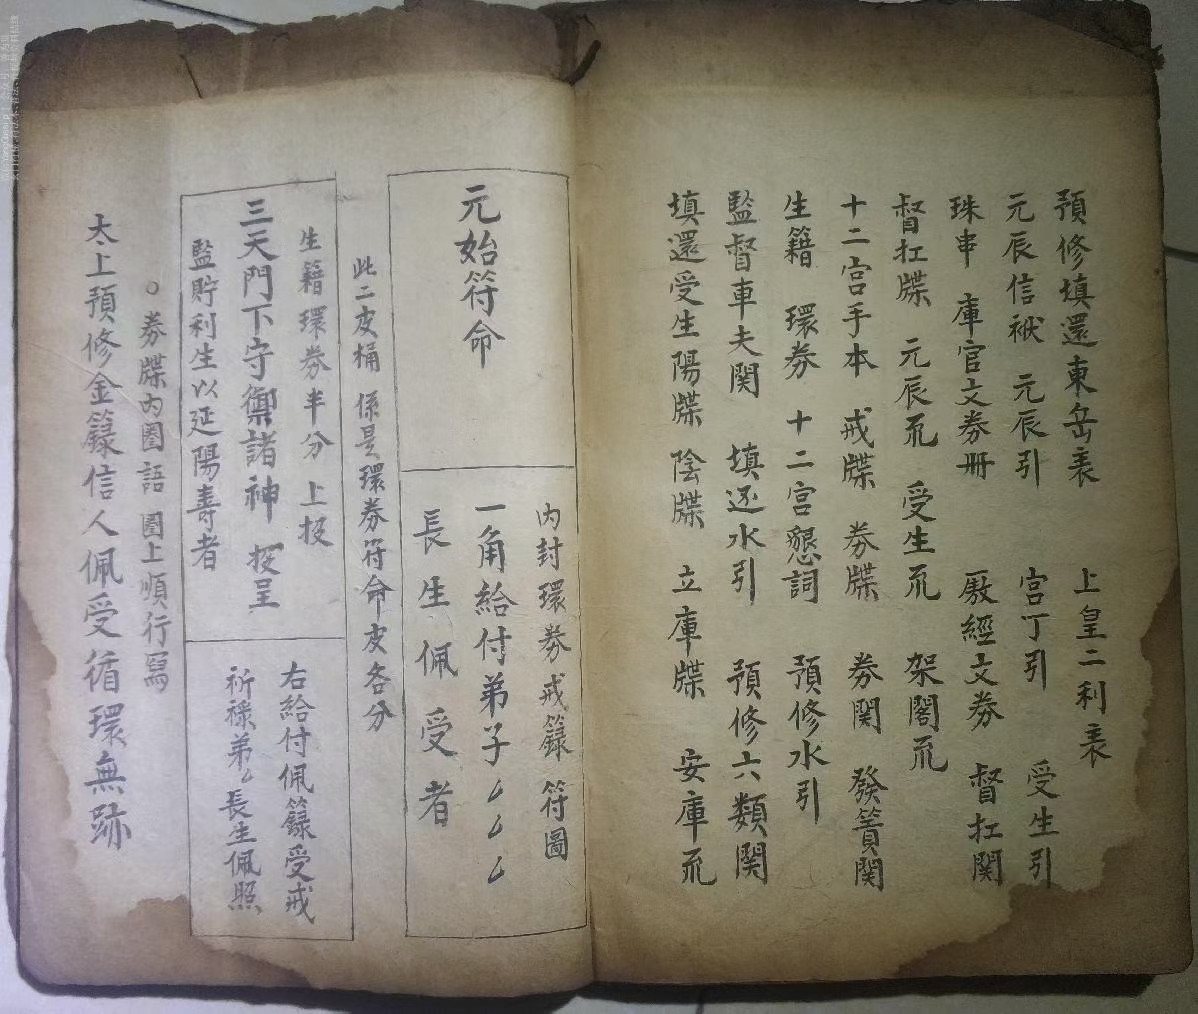 預修填還東岳表　上皇二利表
元辰信袱　元辰引　宮丁引　受生引
珠串　庫官文劵冊　殷經文劵　督扛関
督扛牒　元辰𭅺　受生𭅺　架閣𭅺
十二宮手本　戒牒　劵牒　劵関　發篢関
生籍　環劵　十二宮懇詞　預修水引
監督車夫関　填还水引　預修六類関
填還受生陽牒　陰牒　立庫牒　安庫𭅺
內封環劵戒籙符圖
元始符命　一角給付弟子厶厶厶
長生佩受者
此二皮桶係是環劵符命皮各分
生籍環劵半分上投
三天門下守禦諸神　投呈
監貯利生以延陽壽者
右給付佩籙受戒
祈祿弟厶長生佩照
○劵牒內圈語　圈上順行寫
太上預修金籙信人佩受循環無跡